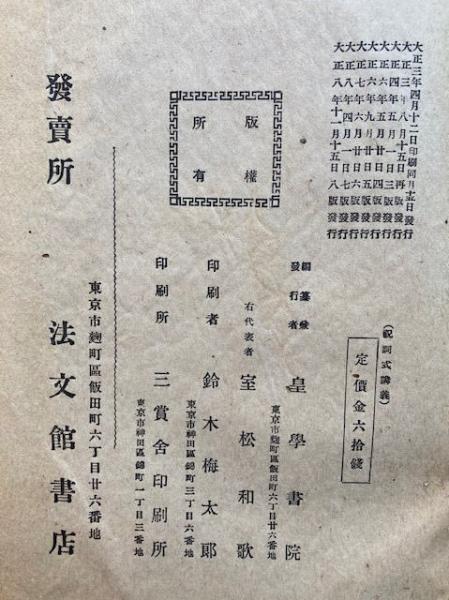 大正三年四月十二日印刷同月十五日發行
大正三年八月十五日再版發行
大正四年五月一日三版發行
大正六年五月廿日四版發行
大正六年九月廿日五版發行
大正七年六月廿日六版發行
大正八年四月一日七版發行
大正八年十一月十五日八版發行
(祝詞式講義)
定價金六拾錢
版權
所有
編纂兼
發行者
皇學書院
東京市麴町區飯田町六丁目廿六番地
右代表者
室松和歌
印刷者
鈴木梅太郎
東京市神田區錦町三丁目六番地
印刷所
三賞舍印刷所
東京市神田區錦町一丁目三番地
東京市麴町區飯田町六丁目廿六番地
發賣所
法文館書店